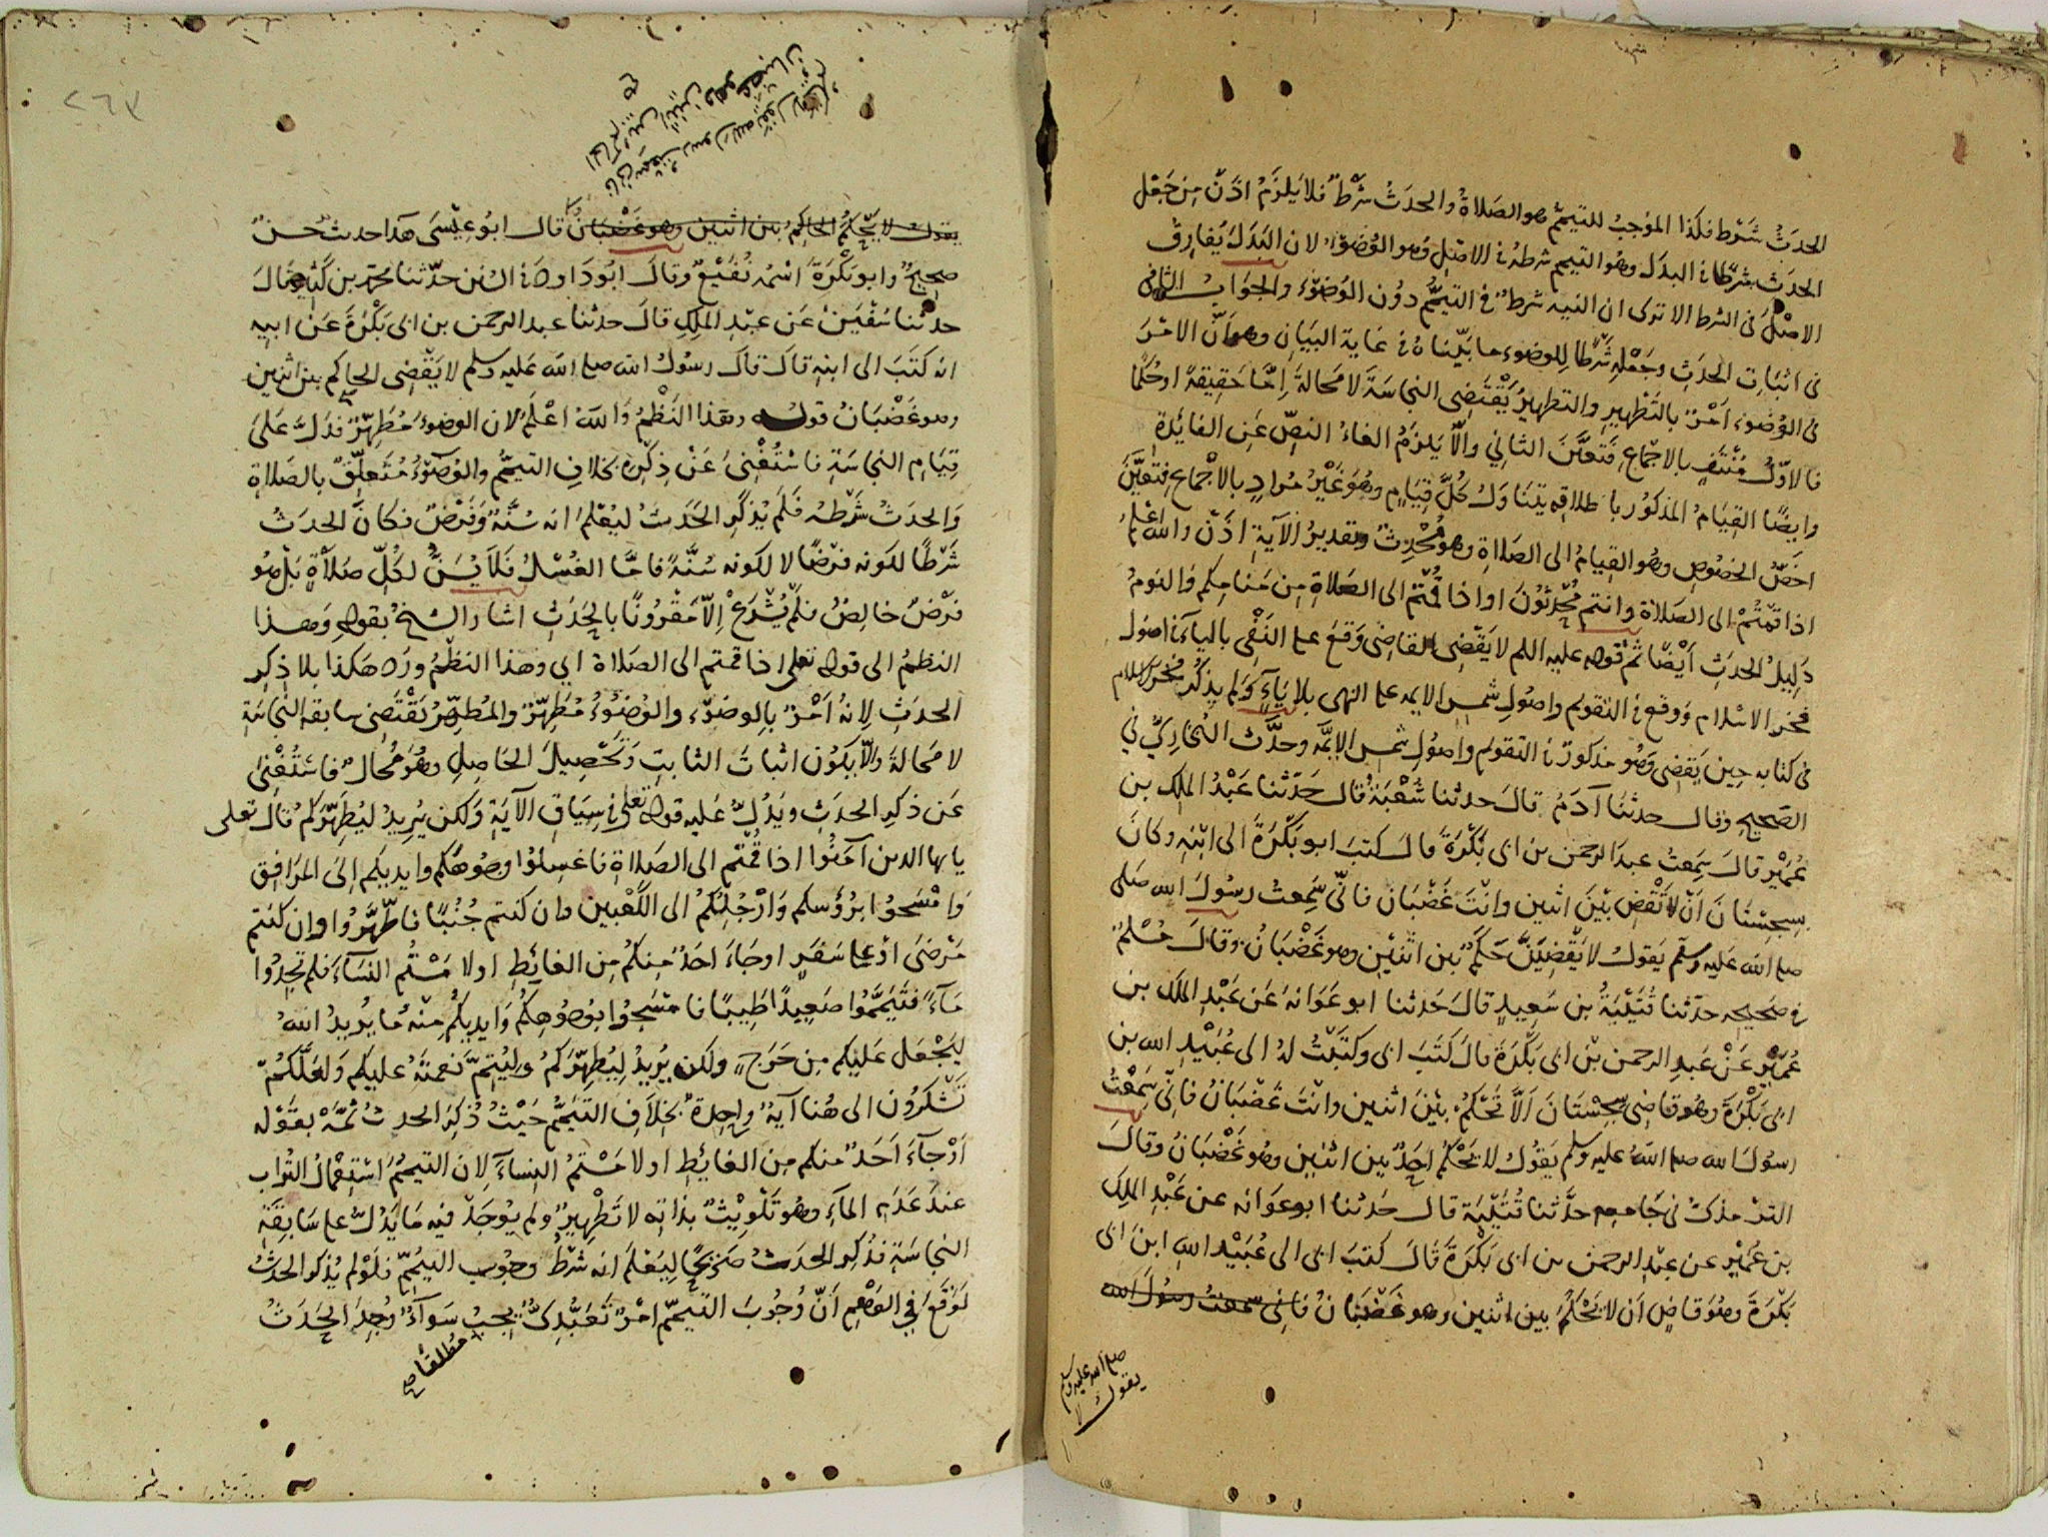 الحدث شرط فكذا الموجب للتيمم هو الصلاة والحدث شرط فلا يلزم اذن من جعل
الحدث شرطا في البدل وهو التيمم شرطه في الاصل وهو الوضوء لان البدل يفارق
الاصل في الشرط الا ترى ان النيه شرط في التيمم دون الوضوء والجواب الثاني
في اثبات الحدث وجعله شرطا للوضوء ما بيناه في غاية البيان وهو ان الامر
في الوضوء امر بالتطهير والتطهير يقتضي النجاسة لا محالة اما حقيقة او حكما
فالاول منتف بالاجماع فتعين الثاني والا يلزم الغاء النص عن الفائدة
وايضا القيام المذكور باطلاقه يتناول كل قيام وهو غير مراد بالاجماع فتعين
اخص الخصوص وهو القيام الى الصلاة وهو محدث وتقدير الآية اذن والله اعلم
اذا قمتم الى الصلاة وانتم محدثون او اذا قمتم الى الصلاة من منامكم والنوم
دليل الحدث ايضا ثم قوله عليه السلم لا يقضي القاضي وقع على النفي بالياء في اصول
فخر الاسلام ووقع في التقويم واصول شمس الايمه على النهي بلا ياء ولم يذكر فخر الاسلام
في كتابه حين يقضي وهو مذكور في التقويم واصول شمس الايمه وحدث البخاري في
الصحيح وقال حدثنا آدم قال حدثنا شعبة قال حدثنا عبد الملك بن
عمير قال سمعت عبد الرحمن بن ابي بكرة قال كتب ابو بكرة الى ابنه وكان
بسجستان ان لا تقض بين اثنين وانت غضبان فاني سمعت رسول الله صلى
صلى الله عليه وسلم يقول لا يقضين حكم بين اثنين وهو غضبان وقال مسلم
في صحيحه حدثنا قتيبة بن سعيد قال حدثنا ابو عوانة عن عبد الملك بن
عمير عن عبد الرحمن بن ابي بكرة قال كتب ابي وكتبت له الى عبيد الله بن
ابي بكرة وهو قاضي سجستان الا تحكم بين اثنين وانت غضبان فاني سمعت
رسول الله صلى الله عليه وسلم يقول لا يحكم احد بين اثنين وهو غضبان وقال
الترمذي في جامعه حدثنا قتيبة قال حدثنا ابو عوانه عن عبد الملك
بن عمير عن عبد الرحمن بن ابي بكرة قال كتب ابي الى عبيد الله ابن ابي
بكرة وهو قاض ان لا تحكم بين اثنين وهو غضبان فاني سمعت رسول الله
صلى الله عليه وسلم
يقول لا
٢٦٧
فاني سمعت رسول الله يقول
الحاكم بين اثنين وهو غضبان
صح
يقول لا يحكم الحاكم بين اثنين وهو غضبان قال ابو عيسى هذا حديث حسن
صحيح وابو بكرة اسمه نفيع وقال ابو داود في السنن حدثنا محمد بن كثير قال
حدثنا سفين عن عبد الملك قال حدثنا عبد الرحمن بن ابي بكرة عن ابيه
انه كتب الى ابنه قال قال رسول الله صلى الله عليه وسلم لا يقضي الحاكم بين اثنين
وهو غضبان قوله وهذا النظم والله اعلم لان الوضوء مطهر فدل على
قيام النجاسة فاستغنى عن ذكره بخلاف التيمم والوضوء متعلق بالصلاة
والحدث شرطه فلم يذكر الحدث ليعلم انه سنة وفرض فكان الحدث
شرطا لكونه فرضا لا لكونه سنة فاما الغسل فلا يسن لكل صلاة بل هو
فرض خالص فلم يشرع الا مقرونا بالحدث اشار الشيخ بقوله وهذا
النظم الى قوله تعلى اذا قمتم الى الصلاة اي وهذا النظم ورد هكذا بلا ذكر
الحدث لانه امر بالوضوء والوضوء مطهر والمطهر يقتضي سابقه النجاسة
لا محالة والا يكون اثبات الثابت وتحصيل الحاصل وهو محال فاستغنى
عن ذكر الحدث ويدل عليه قوله تعلى في سياق الآية ولكن يريد ليطهركم قال تعلى
يايها الذين آمنوا اذا قمتم الى الصلاة فاغسلوا وجوهكم وايديكم الى المرافق
وامسحوا برؤسكم وارجلكم الى الكعبين وان كنتم جنبا فاطهروا وان كنتم
مرضى او على سفر او جاء احد منكم من الغائط او لامستم النساء فلم تجدوا
ماء فتيمموا صعيدا طيبا فامسحوا بوجوهكم وايديكم منه ما يريد الله
ليجعل عليكم من حرج ولكن يريد ليطهركم وليتم نعمته عليكم ولعلكم
تشكرون الى هنا آية واحدة بخلاف التيمم حيث ذكر الحدث ثمه بقوله
او جآء احد منكم من الغائط او لامستم النساء لان التيمم استعمال التراب
عند عدم الماء وهو تلويث بذاته لا تطهير ولم يوجد فيه ما يدل على سابقة
النجاسة فذكر الحدث صريحا ليعلم انه شرط وجوب التيمم فلو لم يذكر الحدث
لوقع في الوهم ان وجوب التيمم امر تعبدي يجب سوآء وجد الحدث
مطلقا صح